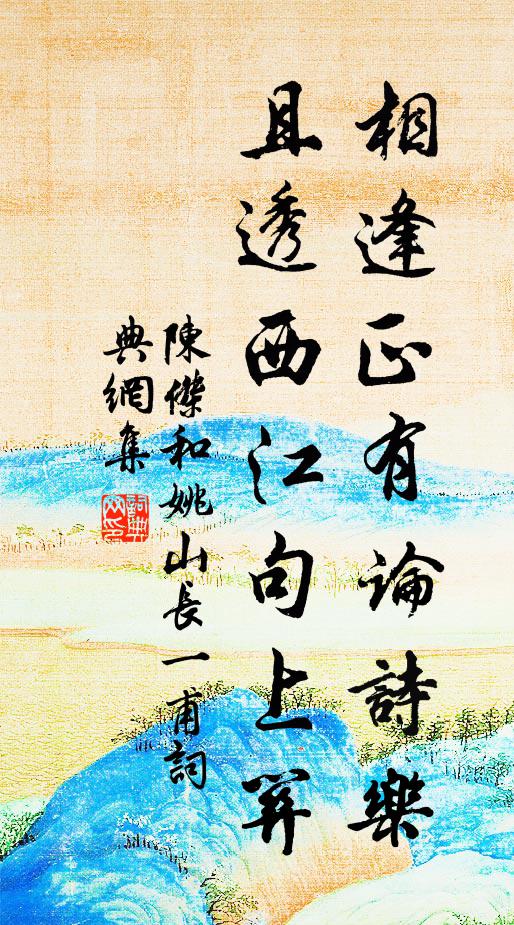 相逢正有論詩樂
且透西江句上關
陳傑和姚山長一甫詞
典網集
詞典